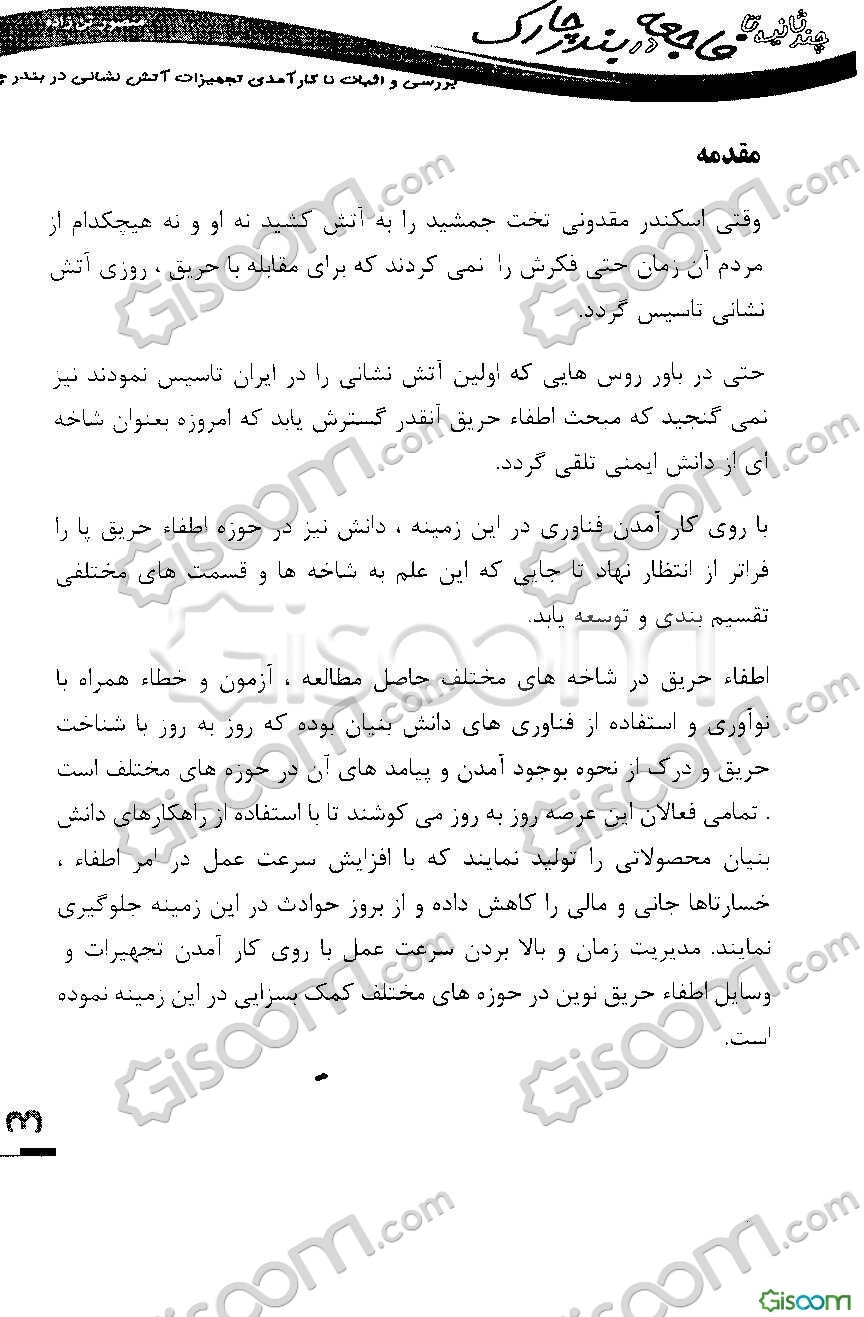 چند ثانیه تا
فاجعه در بندر چارک
بررسی و اثبات نا کارآمدی تجهیزات آتش نشانی در بندر چ
مقدمه
وقتی اسکندر مقدونی تخت جمشید را به آتش کشید نه او و نه هیچکدام از
مردم آن زمان حتی فکرش را نمی کردند که برای مقابله با حریق ، روزی آتش
نشانی تاسیس گردد.
حتی در باور روس هایی که اولین آتش نشانی را در ایران تاسیس نمودند نیز
نمی گنجید که مبحث اطفاء حریق آنقدر گسترش یابد که امروزه بعنوان شاخه
ای از دانش ایمنی تلقی گردد.
با روی کار آمدن فناوری در این زمینه ، دانش نیز در حوزه اطفاء حریق پا را
فراتر از انتظار نهاد تا جایی که این علم به شاخه ها و قسمت های مختلفی
تقسیم بندی و توسعه یابد.
اطفاء حریق در شاخه های مختلف حاصل مطالعه ، آزمون و خطاء همراه با
نوآوری و استفاده از فناوری های دانش بنیان بوده که روز به روز با شناخت
حریق و درک از نحوه بوجود آمدن و پیامد های آن در حوزه های مختلف است
. تمامی فعالان این عرصه روز به روز می کوشند تا با استفاده از راهکارهای دانش
بنیان محصولاتی را تولید نمایند که با افزایش سرعت عمل در امر اطفاء ،
خسارتاها جانی و مالی را کاهش داده و از بروز حوادث در این زمینه جلوگیری
نمایند. مدیریت زمان و بالا بردن سرعت عمل با روی کار آمدن تجهیرات و
وسایل اطفاء حریق نوین در حوزه های مختلف کمک بسزایی در این زمینه نموده
است.
۳
Gisoom.com
Gisoom.com
Gisoom.com
Gisoom.com
Gisoom
Gisoom.com
Gisoom.com
Gisoom.com
Gisoom.com
Gisoom.com
Gisoom.com
Gisoom